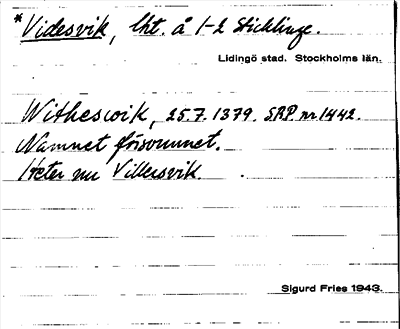 *Videsvik, lht. å 1-2 Sticklinge.
Lidingö stad. Stockholms län.
Witheswik, 25.7.1379. SRP nr.1442.
Namnet försvunnet.
Heter nu Villersvik.
Sigurd Fries 1943.